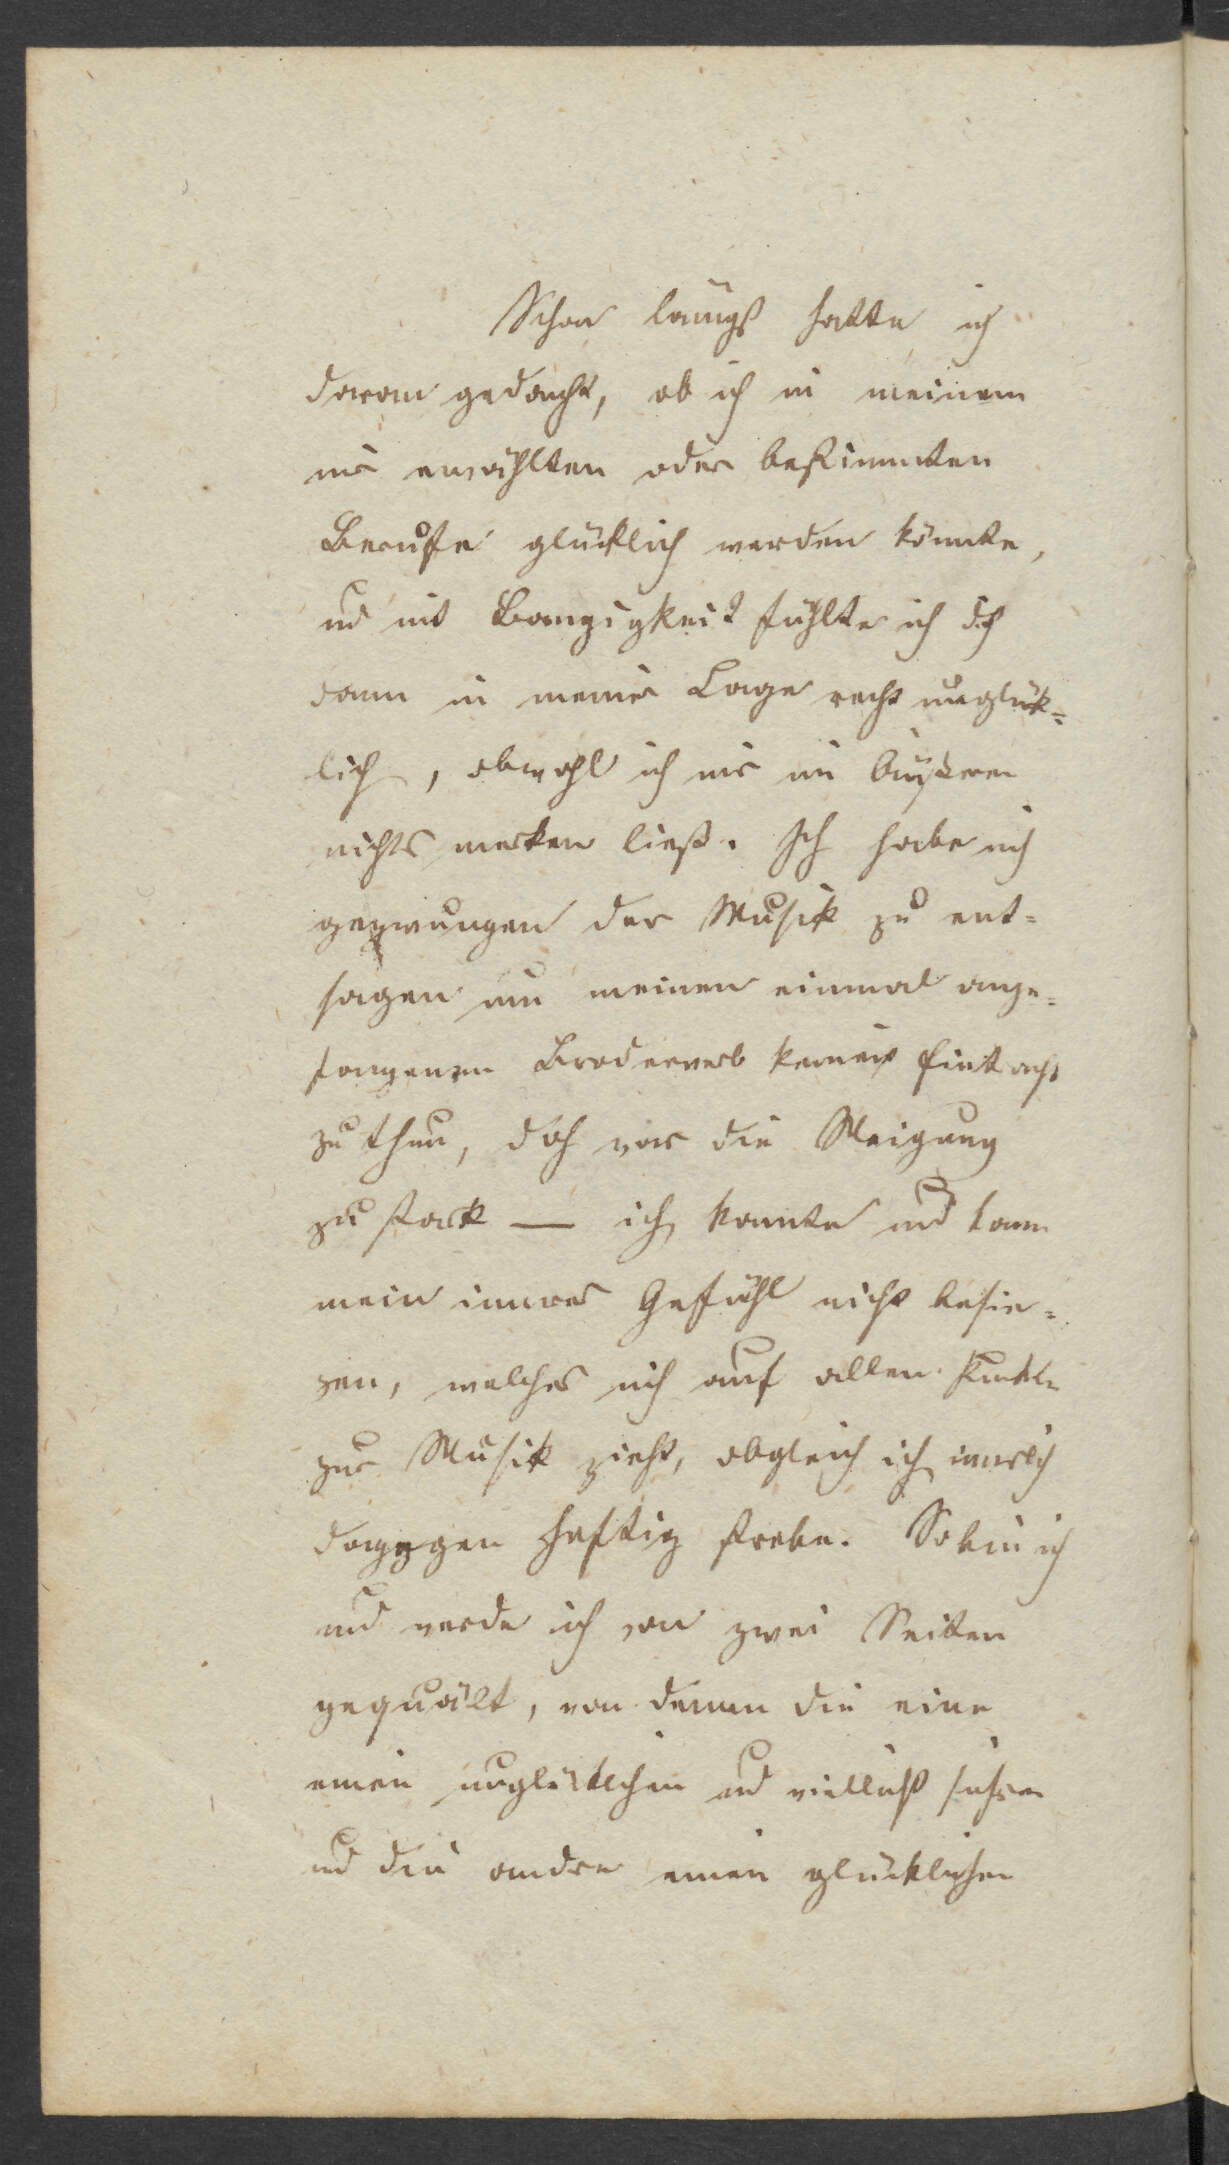 Schon längst hatte ich
daran gedacht, ob ich in meinem
mir erwählten oder bestimmten
Berufe glücklich werden könnte,
und mit Bangigkeit fühlte ich dch
dann in meiner Lage recht unglük=
lich, obwohl ich mir im Äußeren
nichts merken ließ. Ich habe mich
gezwungen der Musik zu ent=
sagen um meinen einmal ange=
fangenen Broderwerb keinen Eintracht
zu thun, doch war die Neigung
zu stark — ich konnte und kann
mein inneres Gefühl nicht besie=
gen, welches mich auf allen Punkten
zur Musik zieht, obgleich ich innerlich
dagegen heftig strebe. So bin ich
und werde ich von zwei Seiten
gequält, von denen die eine
einen unglücklichen und vielleicht
und die andre einen glücklichen